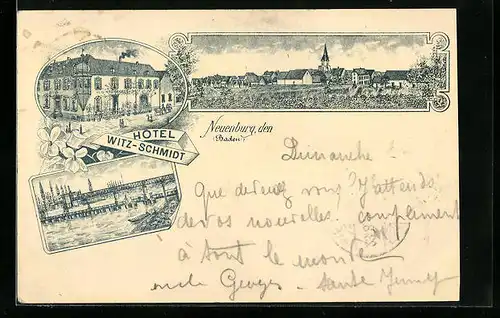 HOTEL
WITZ-SCHMIDT
Neuenburg, den
(Baden)
Dimanche
Que devenez vous? J'attends
de vos nouvelles. compliment
à tout le monde
oncle Georges - tante Jenny